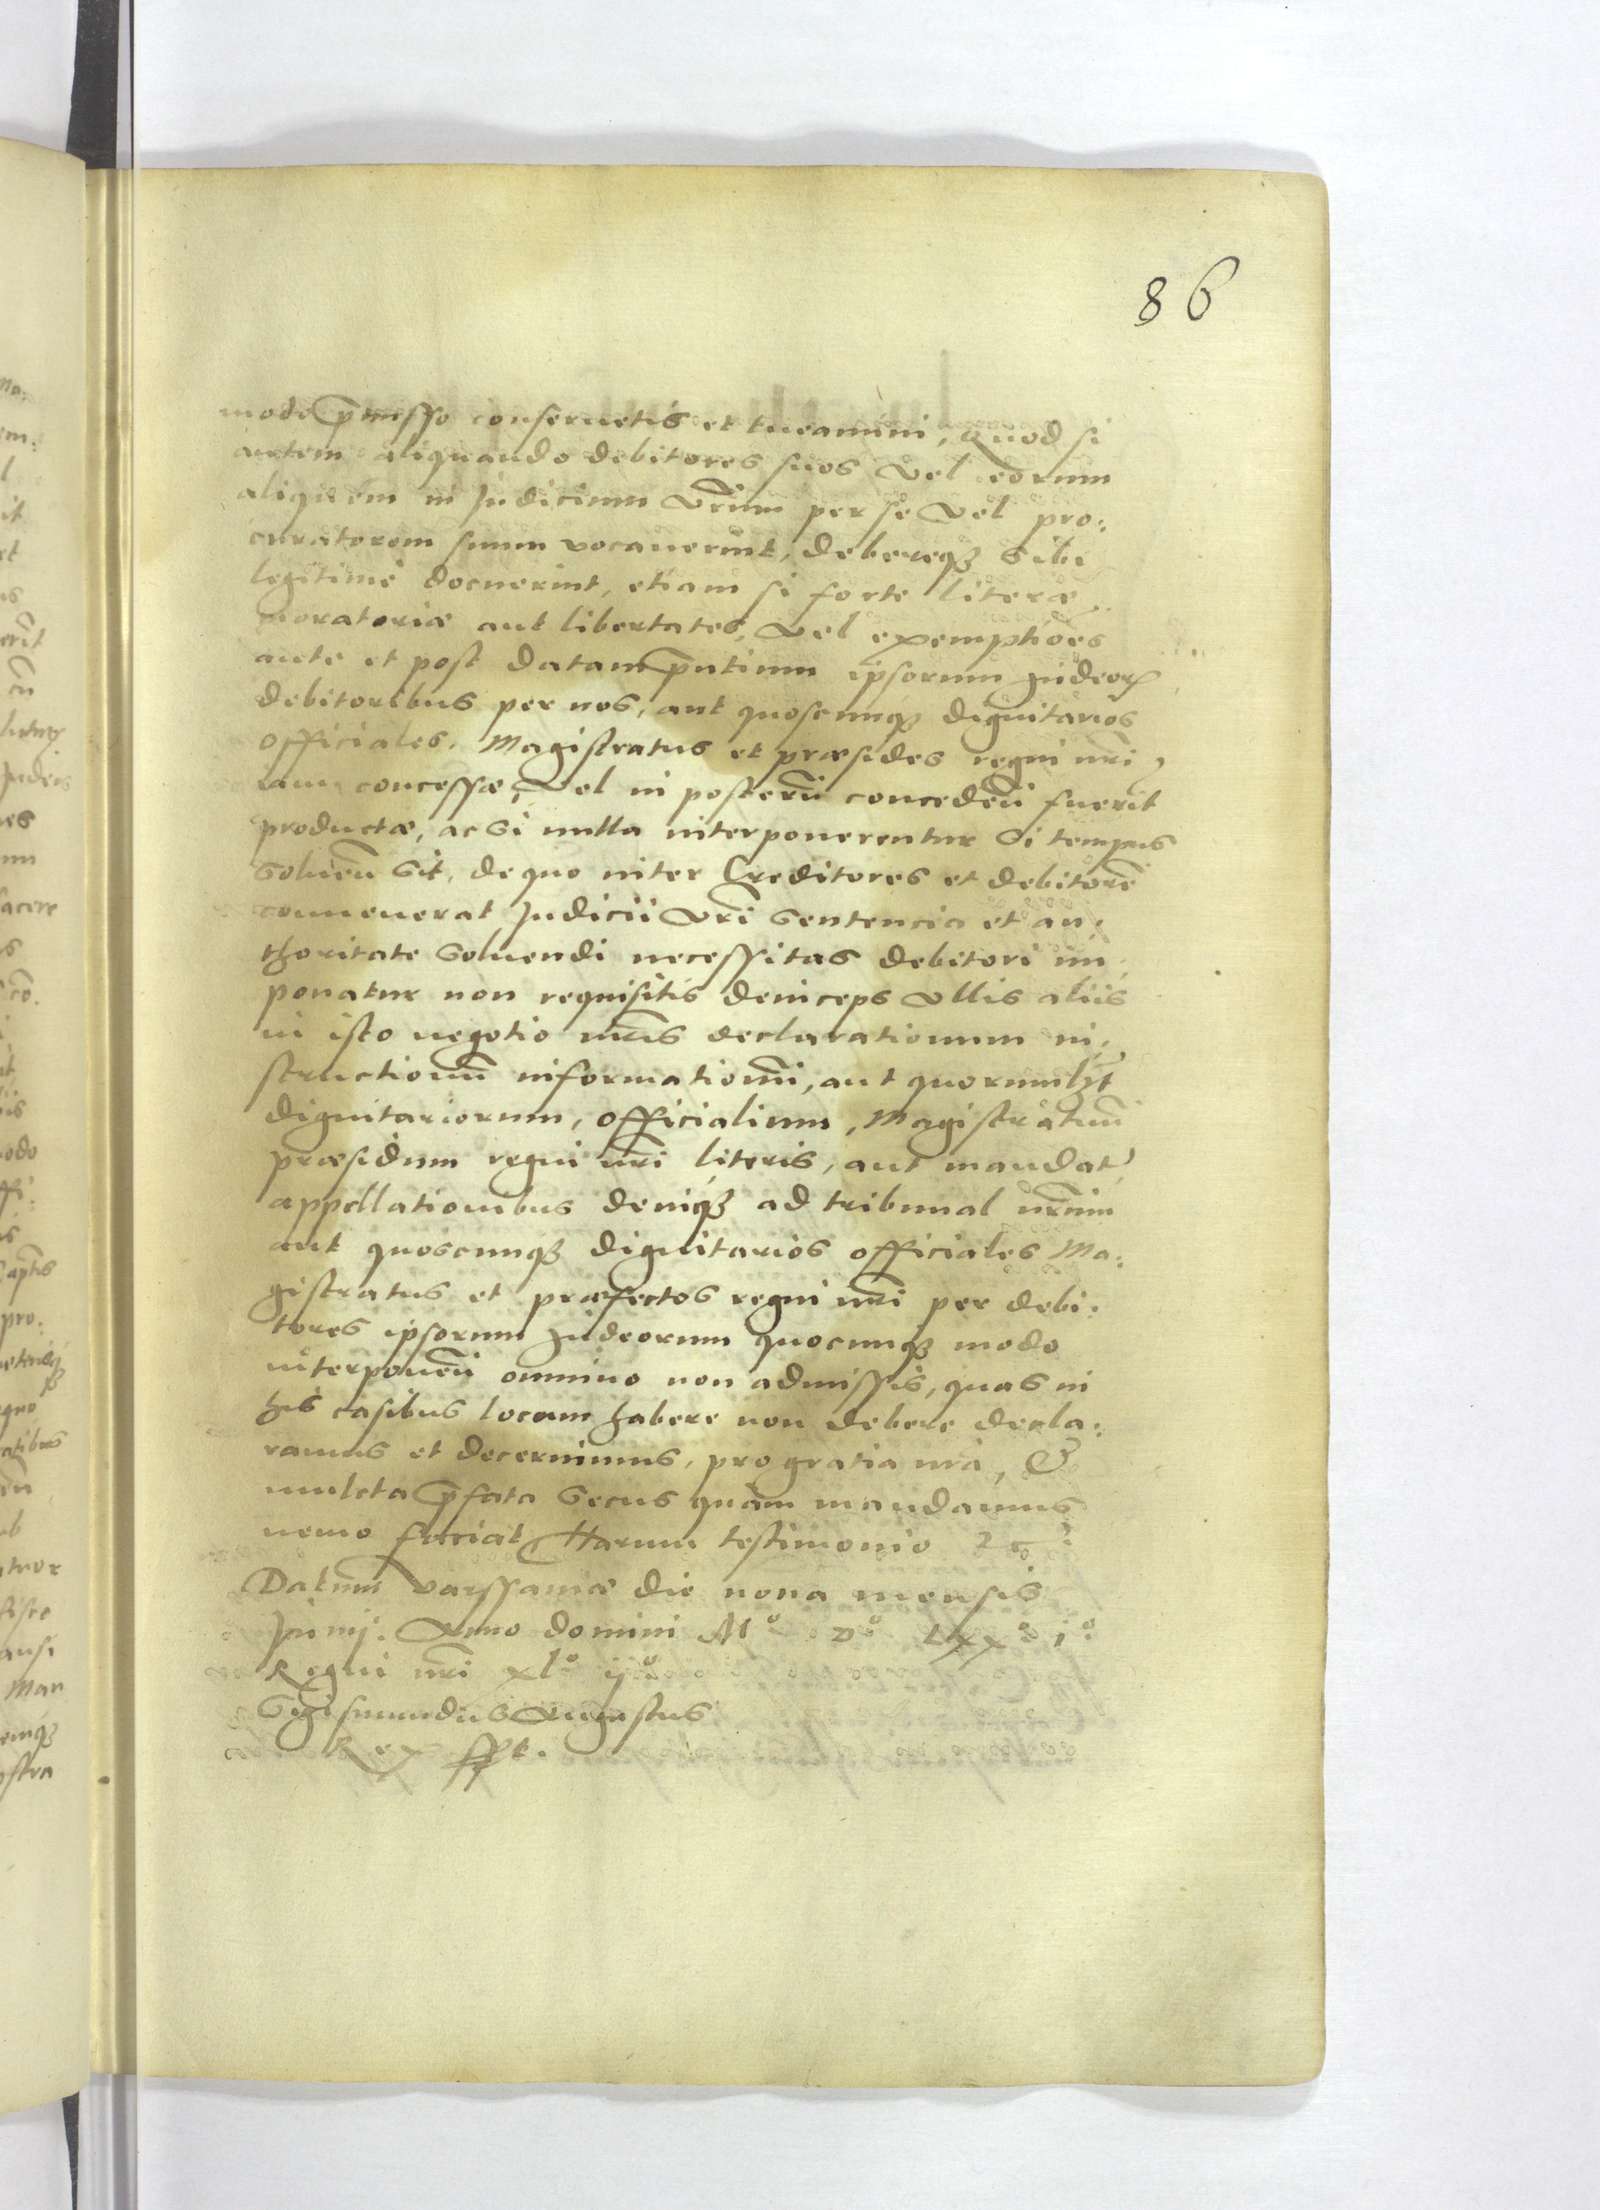 86
modo p̄misso conseruetis et tueamini, Quod si
autem aliquando debitores suos vel eorum
aliquem in Judicium vr̄um per se vel pro:
curatorem suum vocauerint, debereqꝫ sibi
legitimè docuerint, etiam si forte literæ
moratoriæ aut libertates, vel exemptiōes
ante et post datam p̄ntium ipsorum Judeorꝝ
debitoribus per nos, aut quoscunqꝫ dignitarios
officiales, Magistratus et præsides regni nr̄i,
iam concessæ, vel in posterū concedēn fuerīt
productæ, ac si nulla interponerentur Si tempus
soluēn sit, de quo inter Creditores et debitorē
conuenerat, Judicii vr̄i sentencia et au:
thoritate soluendi necessitas debitori im:
ponatur non requisitis deinceps vllis aliis
in isto negotio nr̄is declarationum in:
structionū informationū, aut quorumlꝫt
dignitariorum, officialium, Magistratuū
præsidum regni nr̄i literis, aut mandat̄
appellationibus deniqꝫ ad tribunal nr̄um
aut quoscunqꝫ dignitarios officiales Ma:
gistratus et præfectos regni nr̄i per debi:
tores ipsorum Judeorum quocunqꝫ modo
interponēn omnino non admissis, quas in
his casibus locum habere non debere decla:
ramus et decernimus, pro gratia nr̄a, &
mulcta p̄fata secus quàm mandamus
nemo faciat Harum testimonio &c
Datum varssauiæ die nona mensis
Junij. Anno domini Mº Dº Lxxº 1º
Regni nr̄i xlº ijº
Sigismundus Augustus
Rex sspt.